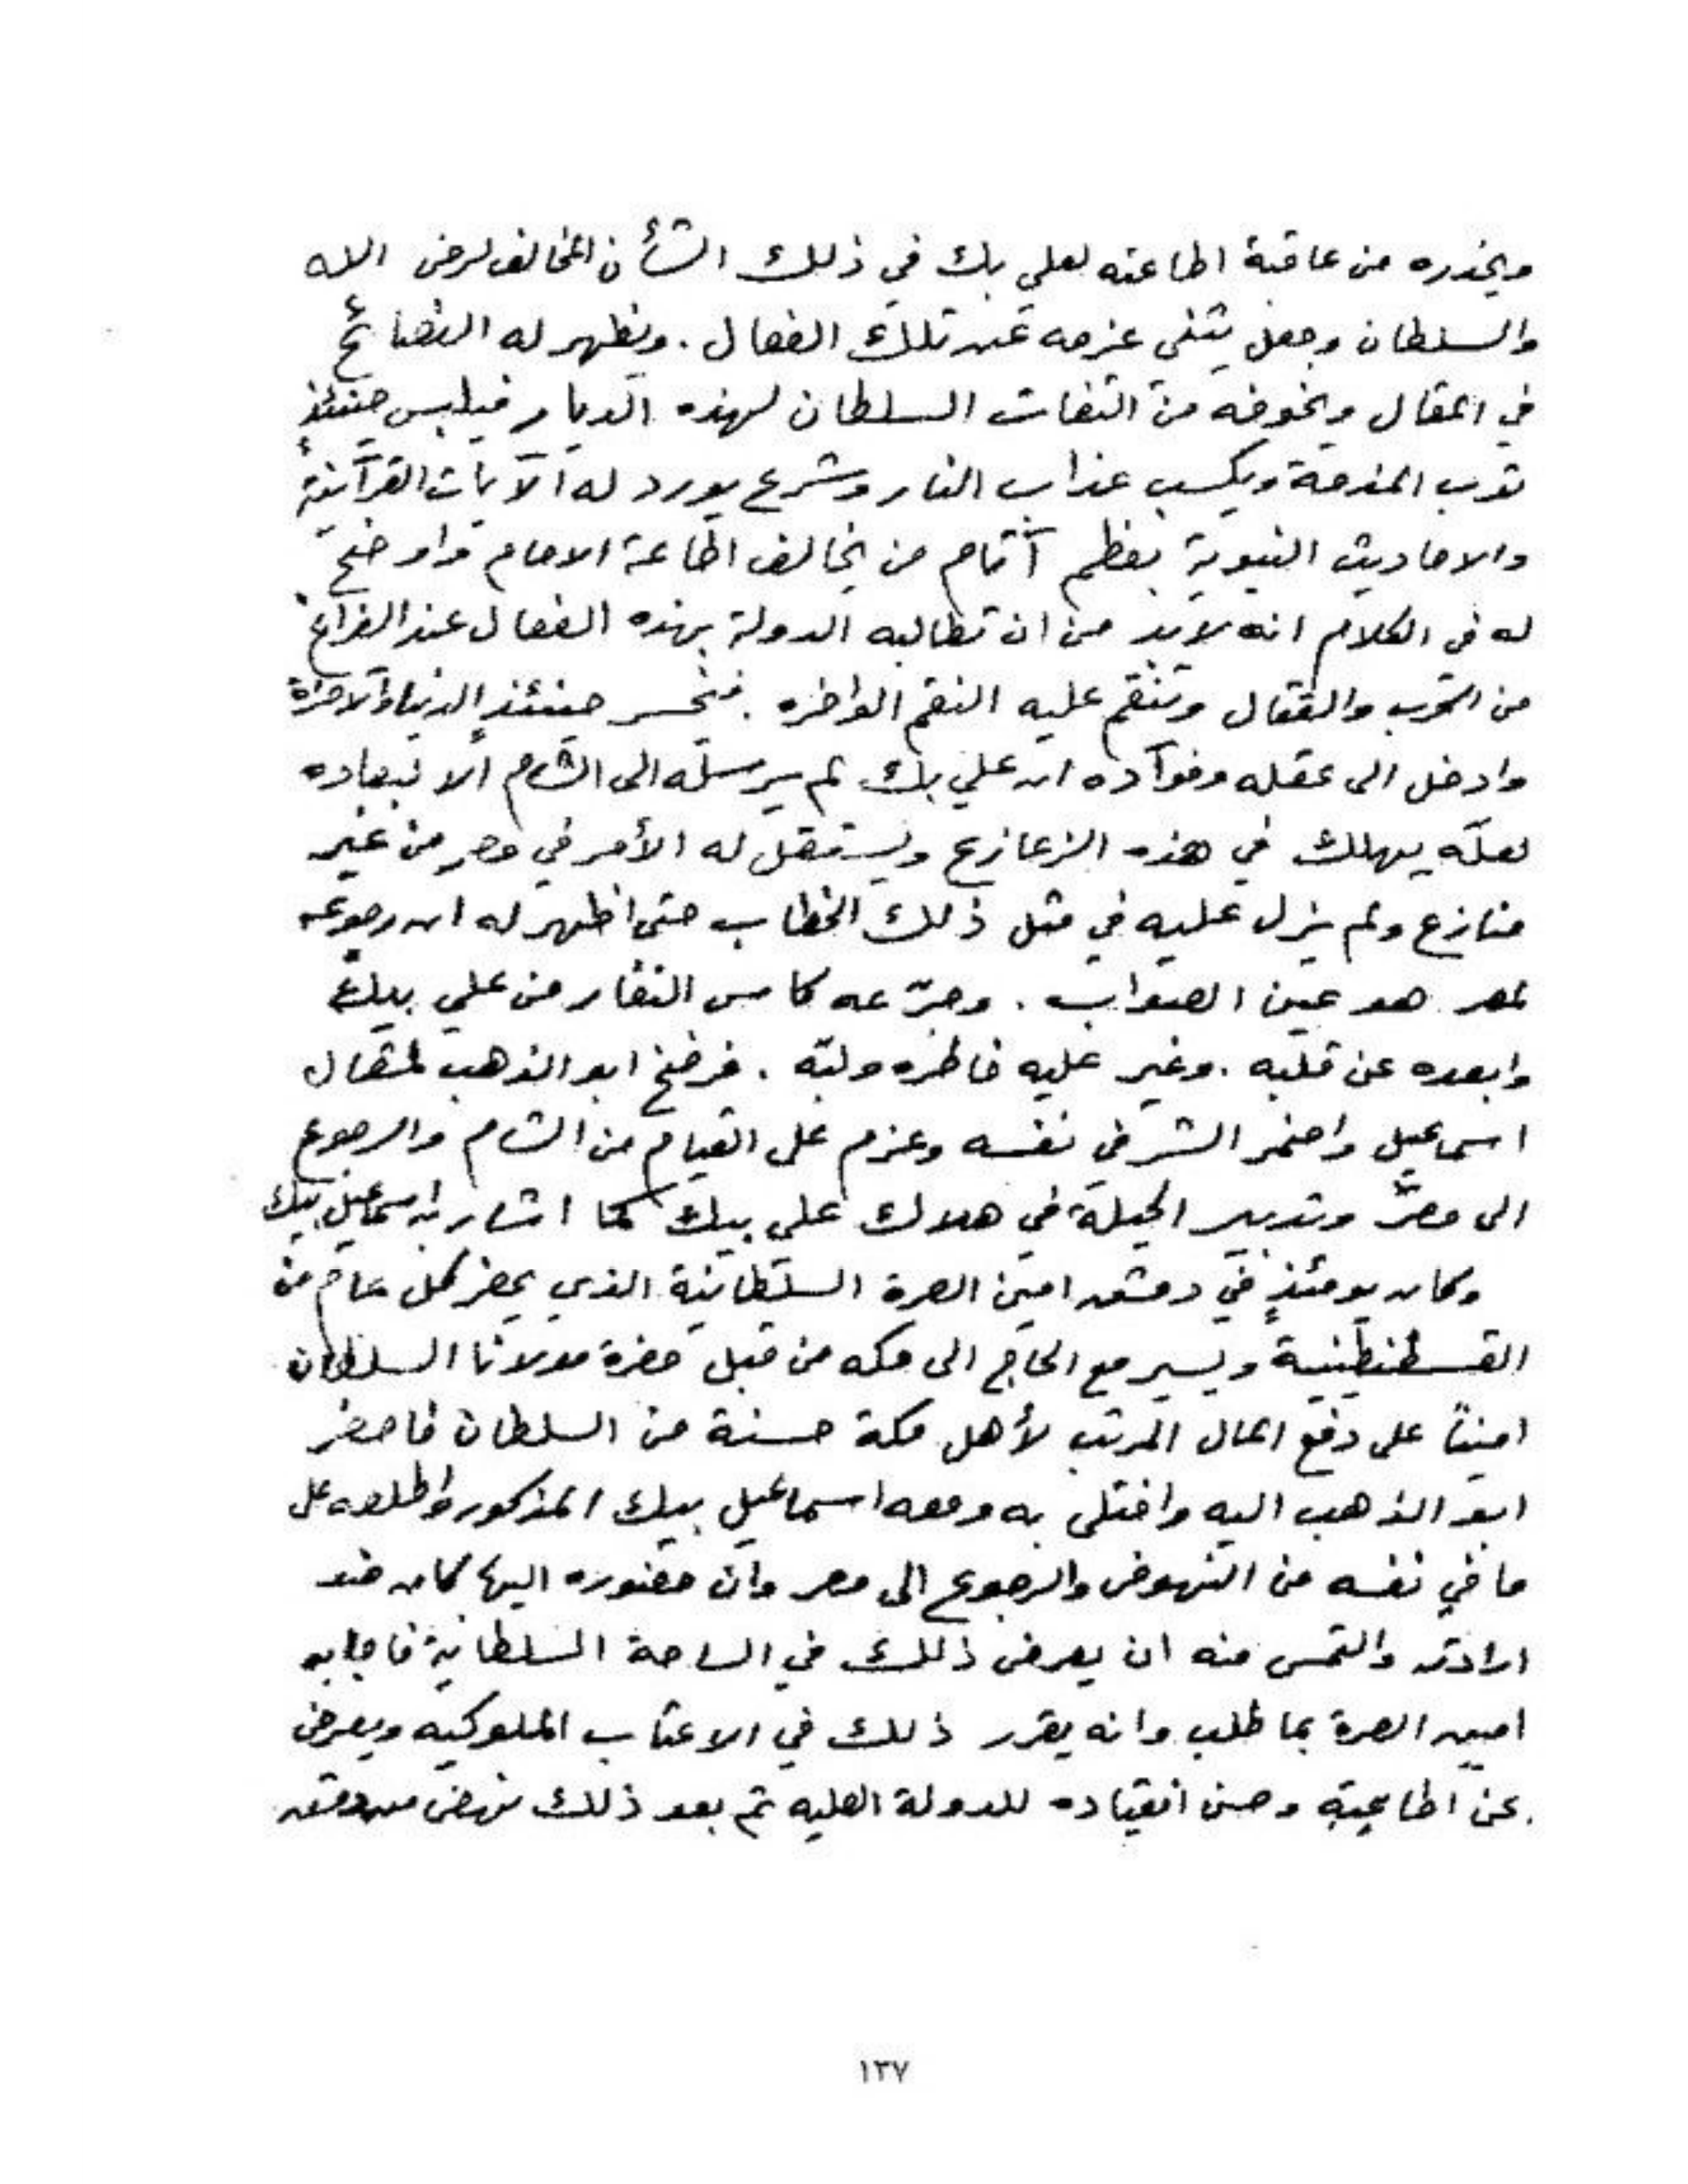 ويحذره من عاقبة اطاعته لعلي بك في ذلك الشأن المخالف لرضى الله
والسلطان وجعل يثني عزمه عن تلك الفعال . ويظهر له النصائح
في المقال ويخوفه من التفات السلطان لهذه الديار فيلبس حينئذٍ
ثوب المذمة ويكسب عذاب النار وشرع يورد له الآيات القرآنية
والاحاديث النبوية بعظم آثام من يخالف اطاعة الامام واوضح
له في الكلام انه لابد من ان تطالبه الدولة بهذه الفعال عند الفراغ
من الحرب والقتال وتنتقم عليه النقم الوافره . فيخسر حينئذٍ الدنيا والآخرة
وادخل الى عقله وفوآده ان علي بك لم يرسله الى الشام الا لبعاده
لعلّه يهلك في هذه الزعازع ويستقل له الأمر في مصر من غير
منازع ولم يزل عليه في مثل ذلك الخطاب حتى اظهر له ان رجوعه
لمصر هو عين الصواب . وجرّعه كاس النفار من علي بيك
وابعده عن قلبه . وغير عليه خاطره ولبّه . فرضخ ابو الذهب لمقال
اسماعيل واضمر الشر في نفسه وعزم على القيام من الشام والرجوع
الى مصر وتدبير الحيلة في هلاك علي بيك كما اشار به اسماعيل بيك
وكان يومئذٍ في دمشق امين الصرة السلطانية الذي يحضر كل عام من
القسطنطينية ويسير مع الحاج الى مكه من قبل حضرة مولانا السلطان
اميناً على دفع المال المرتب لأهل مكة حسنة من السلطان فاحضر
ابو الذهب اليه واختلى به ومعه اسماعيل بيك المذكور واطلعاه على
ما في نفسه من النهوض والرجوع الى مصر وان حضوره اليها كان ضد
ارادته والتمس منه ان يعرض ذلك في الساحة السلطانية فاجابه
امين الصرة بما طلب وانه يقرر ذلك في الاعتاب الملوكيه ويعرض
عن اطاعته وحسن انقياده للدولة العليه ثم بعد ذلك نهض من دمشق
١٣٧